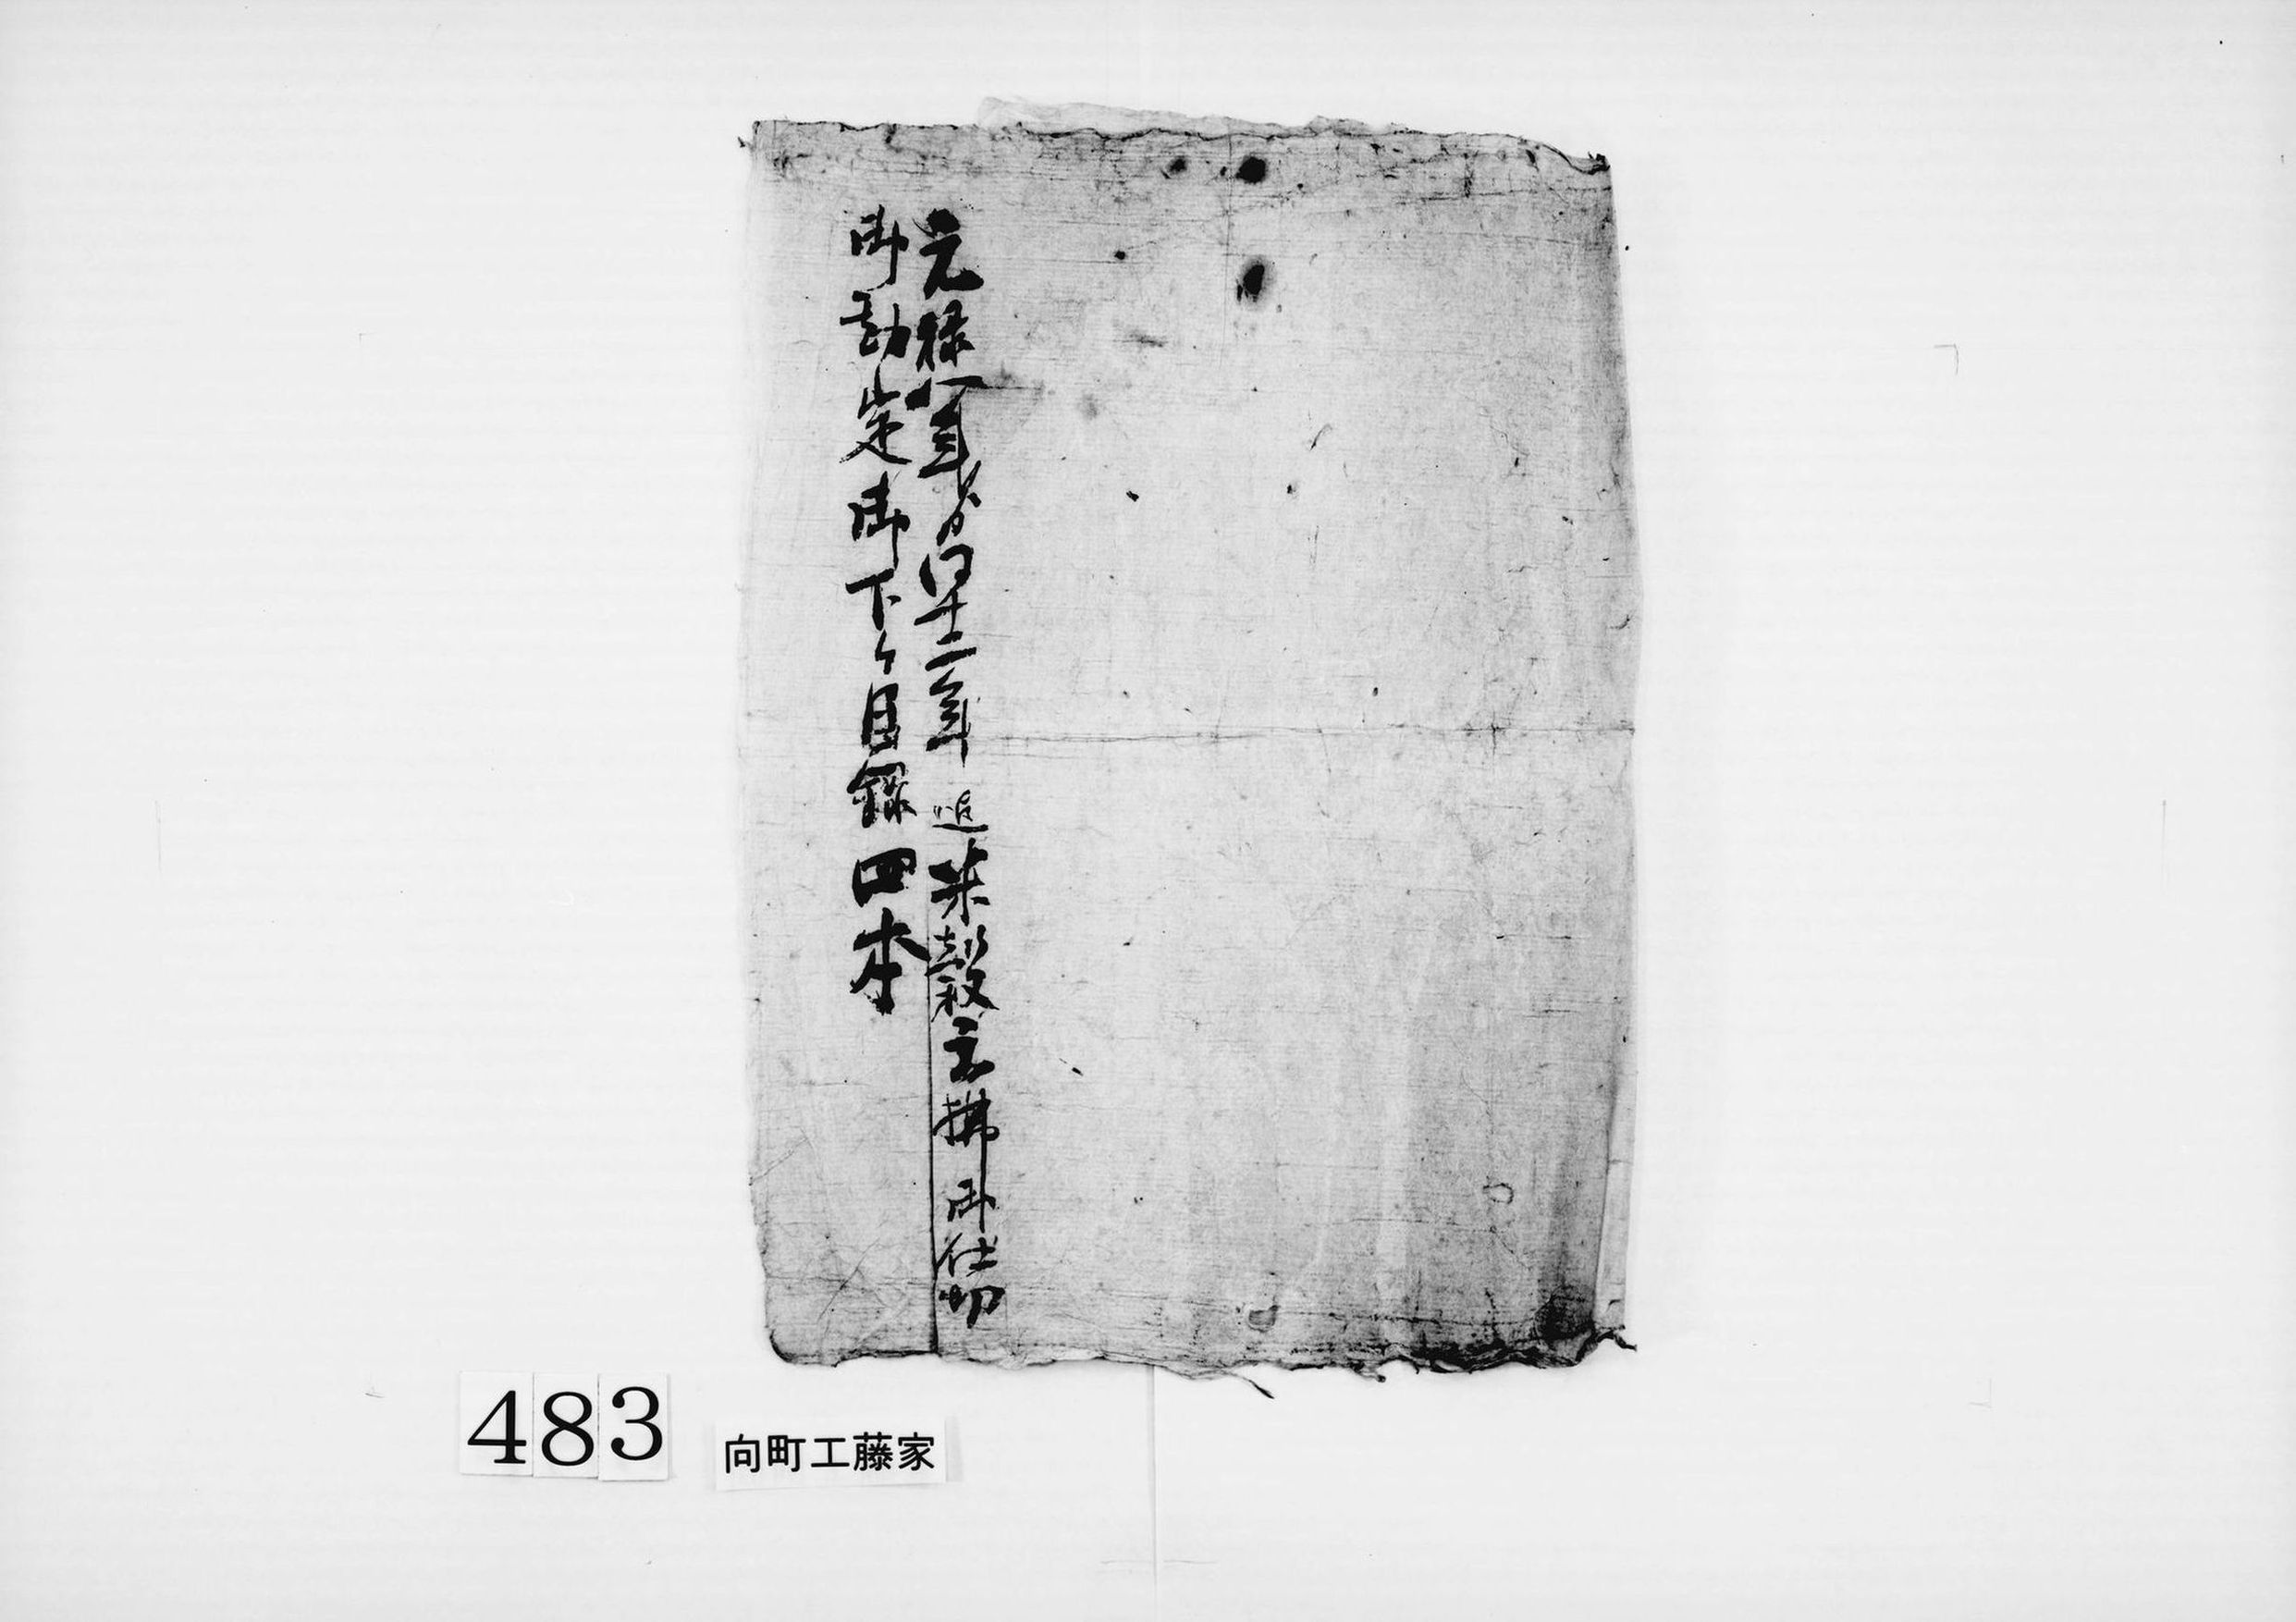 元禄八年ゟ同十二年迄 葉穀立払御仕切
御勘定御下ケ目録 四本
483
向町工藤家